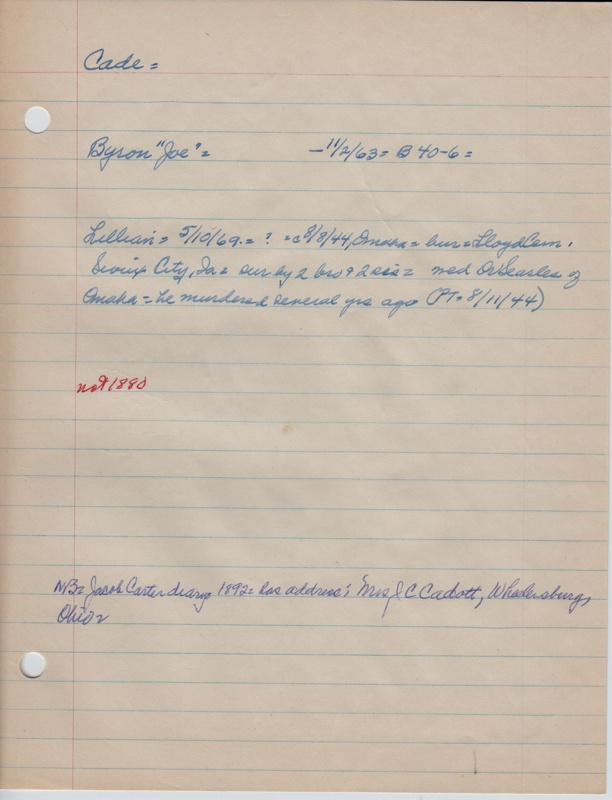 Cade =
Byron "Joe" = - 11/2/63 = B 40-6 =
Lillian = 5/10/69 = ? = c 8/8/44, Omaha = bur = Floyd Cem,
Sioux City, Ia = sur by 2 bro & 2 sis = med Dr Searles of
Omaha = he murdered several yrs ago (PT = 8/11/44)
not 1880
NB = Jacob Carter diary 1892 = has address; "Mrs J C Cadott,
Ohio =